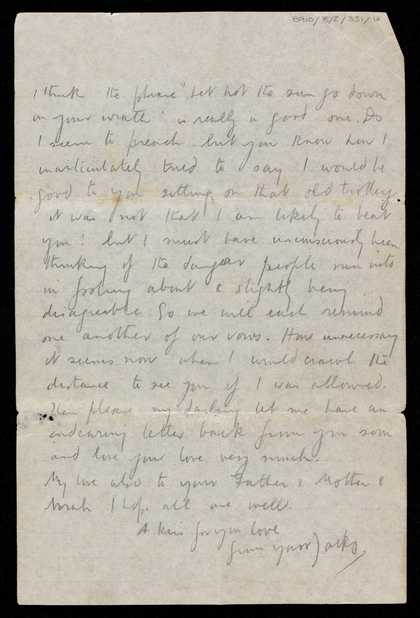 I think the phrase "Let not the sun go down
on your wrath" is really a good one. Do
I seem to preach. but you know how I
inarticulately tried to say I would be
good to you sitting on that old trolley
it was not that I am likely to beat
you! but I must have unconsciously been
thinking of the danger people run into
in about & slightly being
disagreeable. So we will each remind
one another of our vows. How unnecessary
it seems now when I would crawl the
distance to see you if I was allowed.
Then please my darling let me have an
endearing letter back from you soon
and love your love very much.
My love also to your Father & Mother &
Norah I hope all are well.
A kiss for you love
from your Jacks